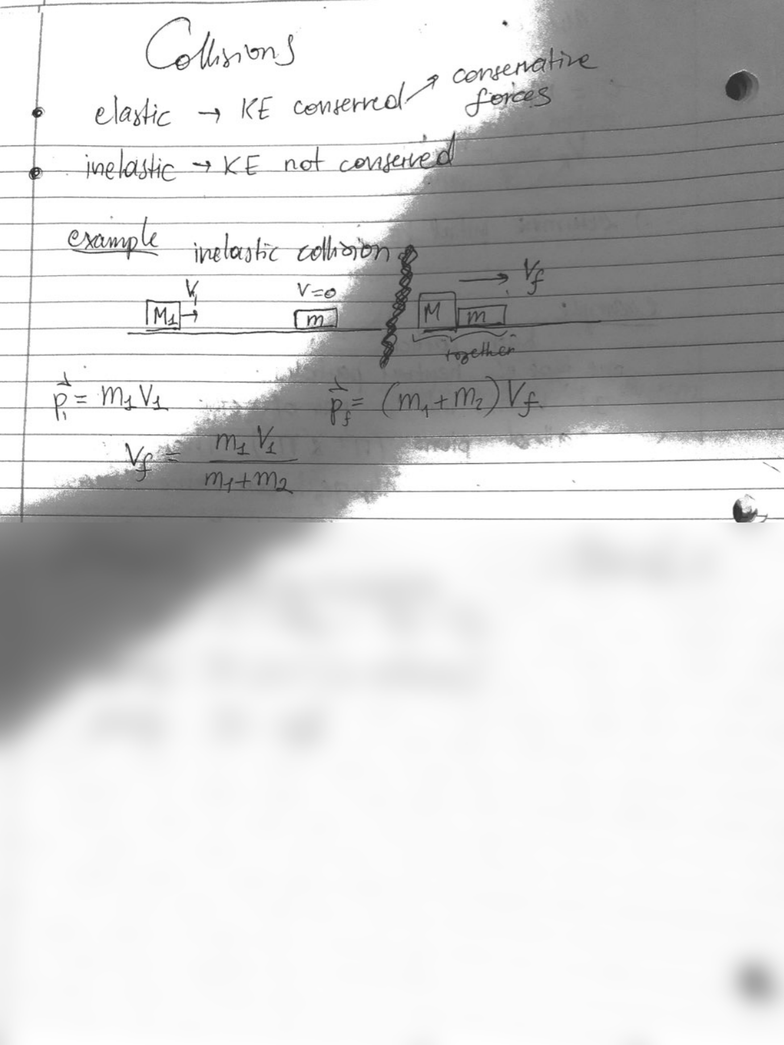 Collisions
• elastic → KE conserved ↗ conservative forces
• inelastic → KE not conserved
example inelastic collision
V₁ V=0 → V_f
M₁ → m M m
together
p⃗ᵢ = m₁V₁ p⃗_f = (m₁+m₂)V_f
V_f = m₁V₁ / m₁+m₂